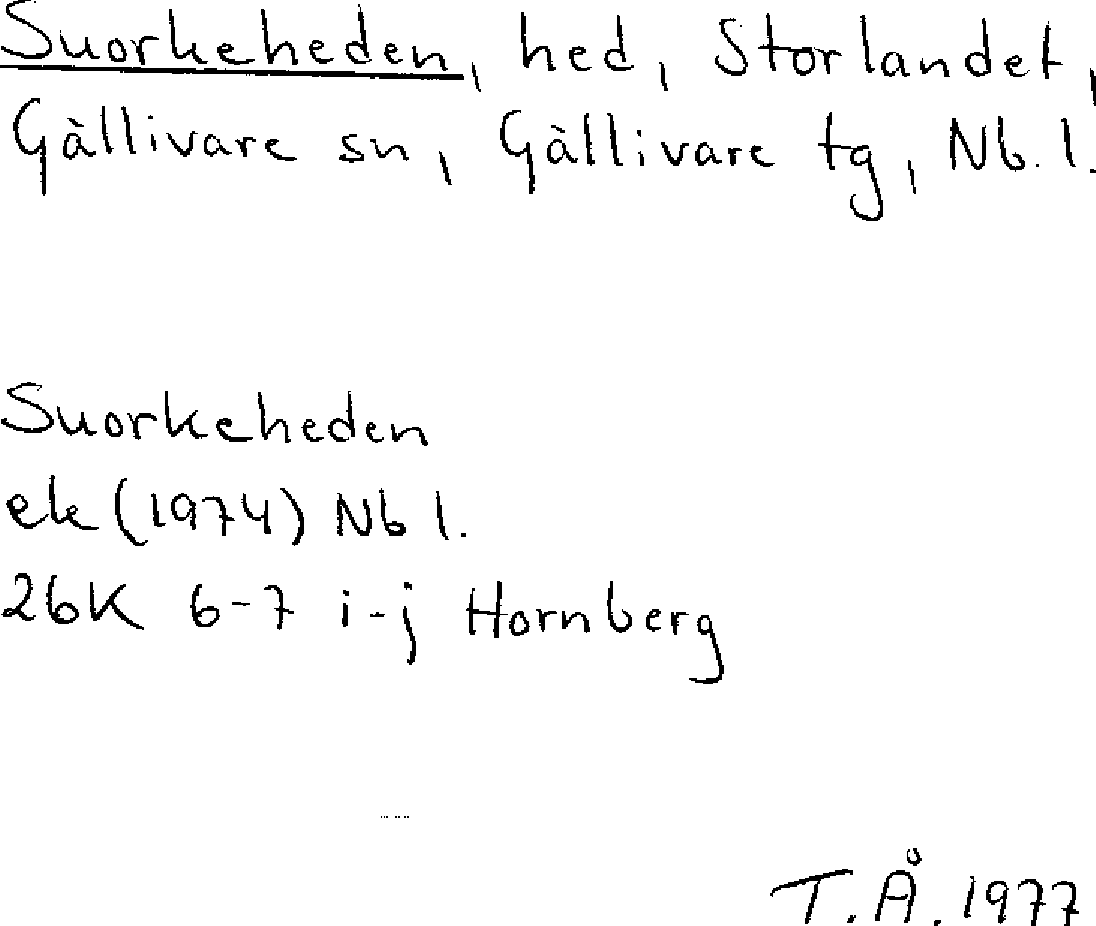 Suorkeheden, hed, Storlandet,
Gällivare sn, Gällivare tg, Nb. l.
Suorkeheden
ek (1974) Nb l.
26K 6-7 i-j Hornberg
T.Å. 1977